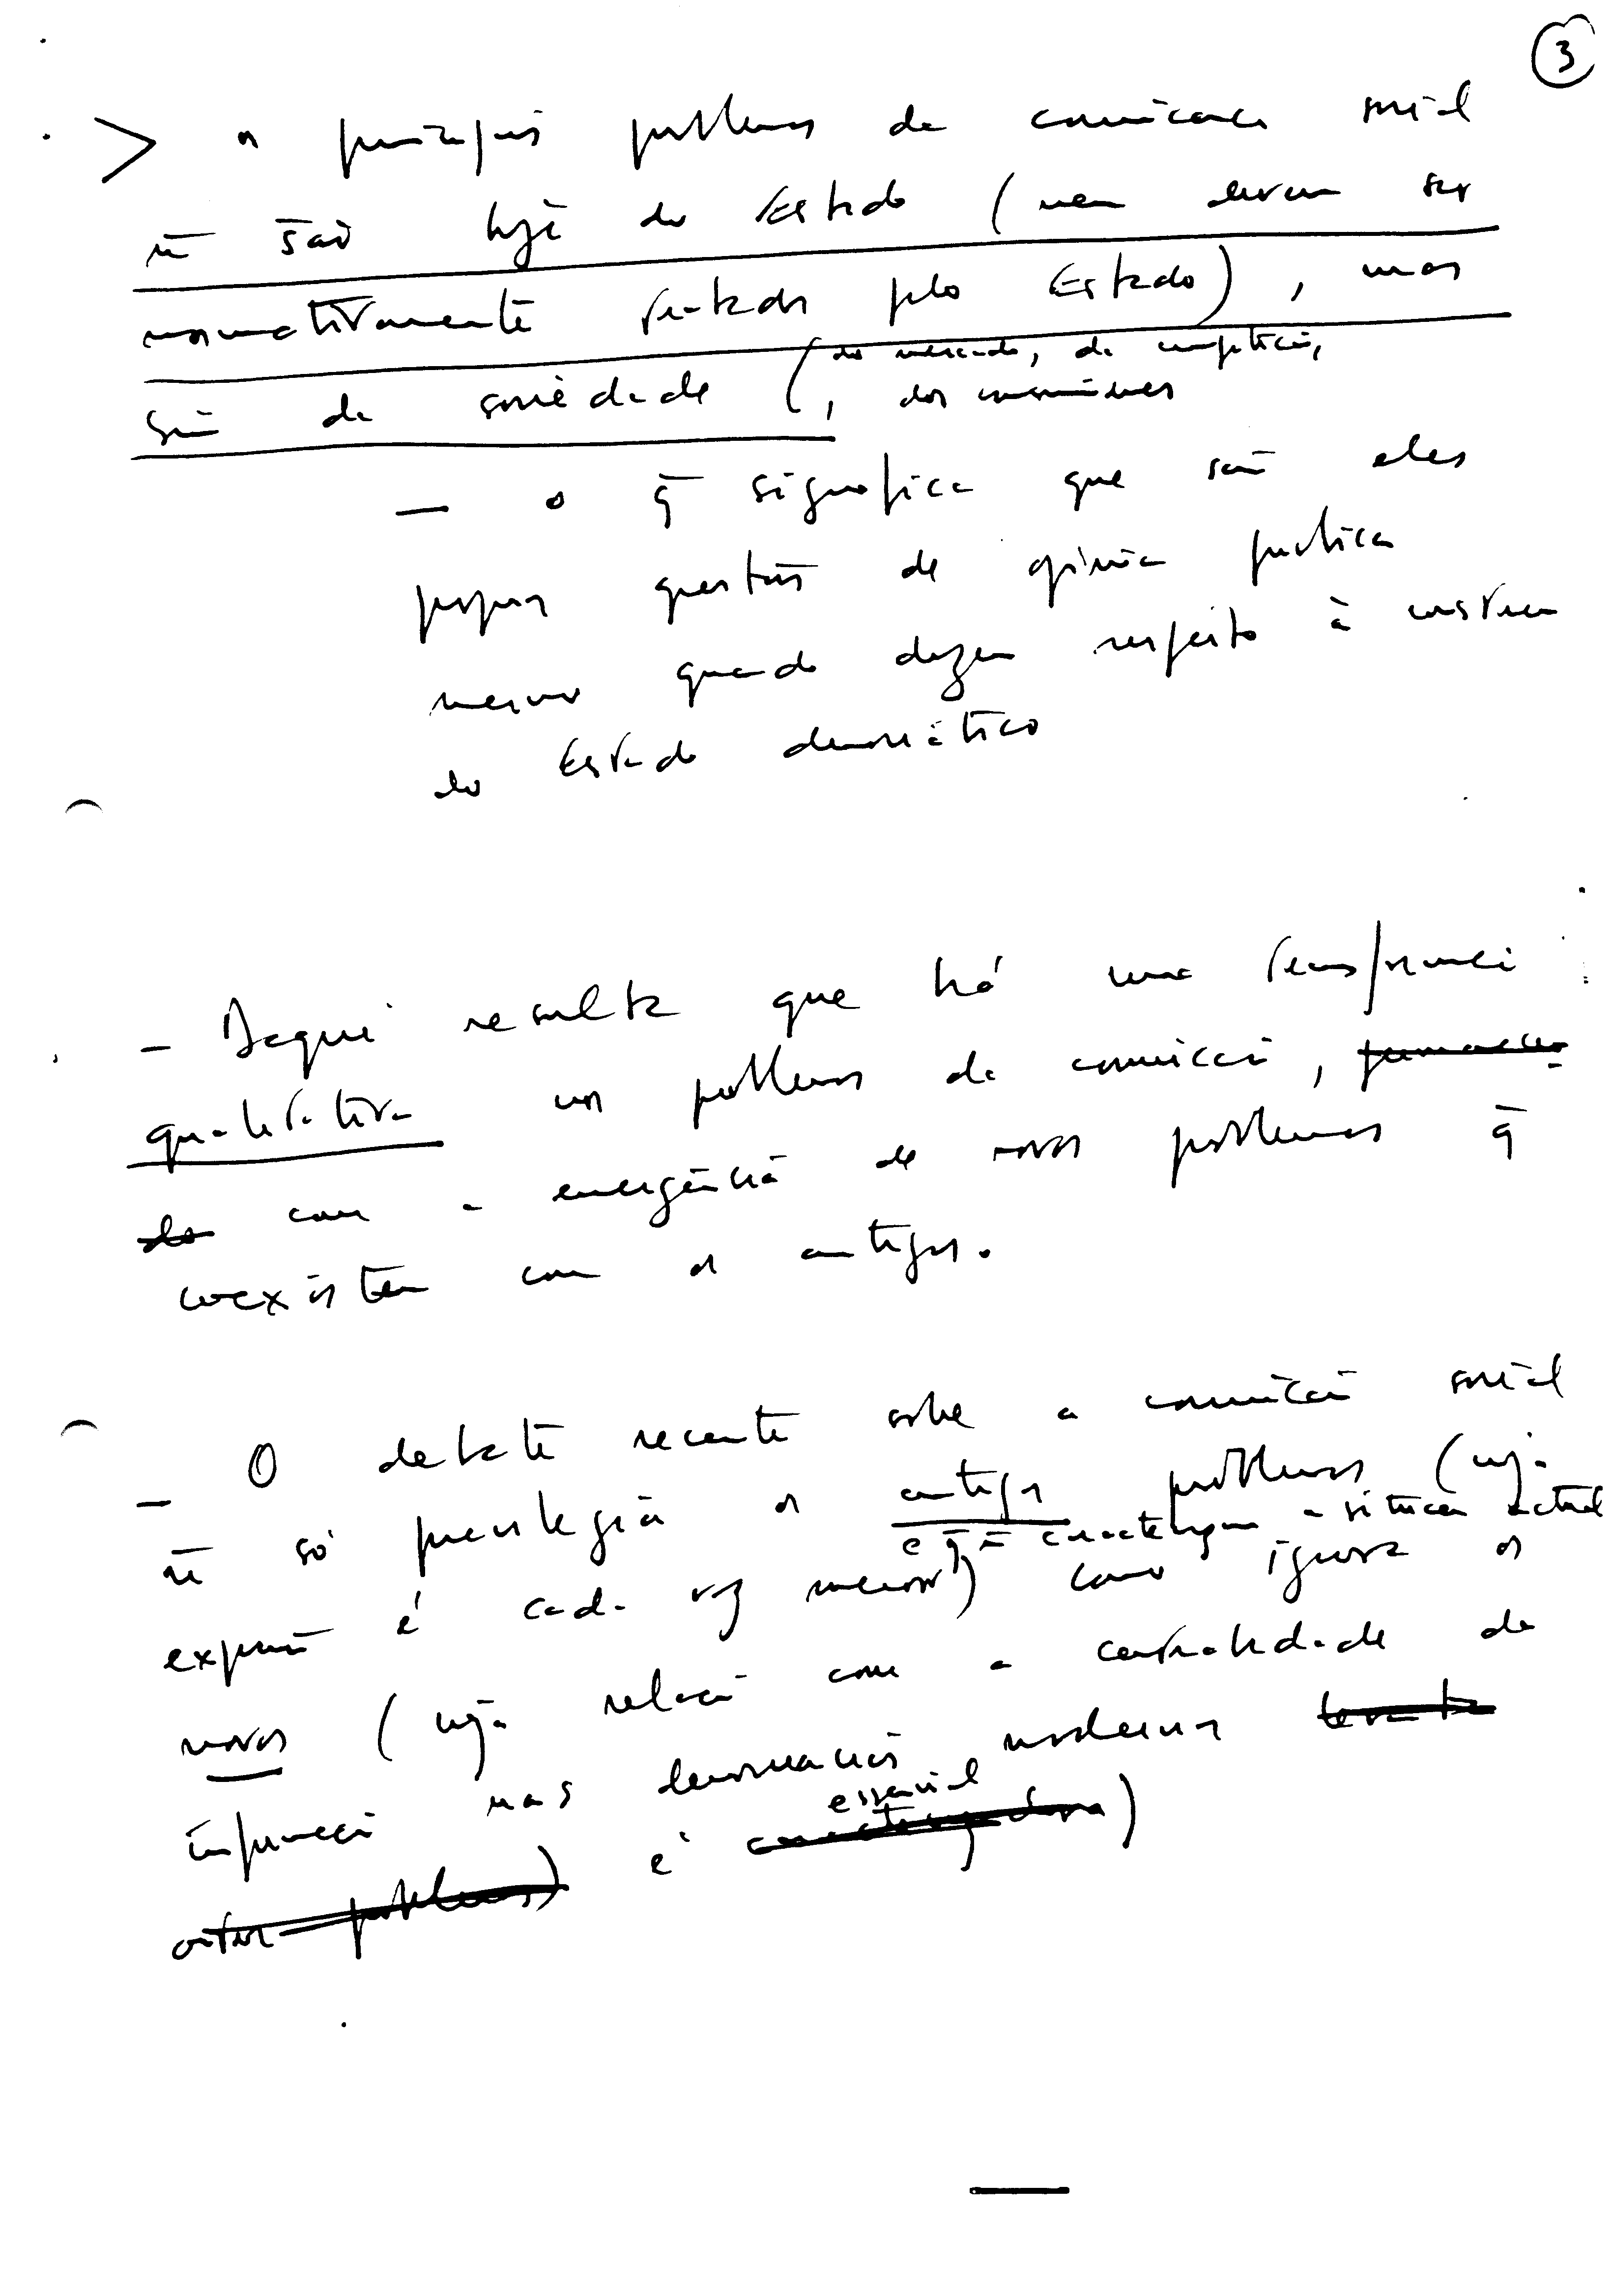 3
> os principais problemas da comunicação social
ñ são hoje do Estado (nem devem ser
normativamente tratados pelo Estado), mas
sim da sociedade (do mercado, da competição,
, dos consumidores
— o q̄ significa que são eles
próprios questões de opinião pública
mesmo quando dizem respeito à
do Estado democrático
- Daqui resulta que há uma transformação
qualitativa nos problemas da comunicação,
do com a emergência de novos problemas q̄
coexistem com os antigos.
- O debate recente sobre a comunicação social
ñ só privilegia os antigos problemas (cuja
e q̄ ñ caracterizam a situação actual
expressão é cada vez menor) como ignora os
novos (cuja relação com a centralidade da
informação nas democracias modernas
essencial
outros problemas) é caracterizadora)